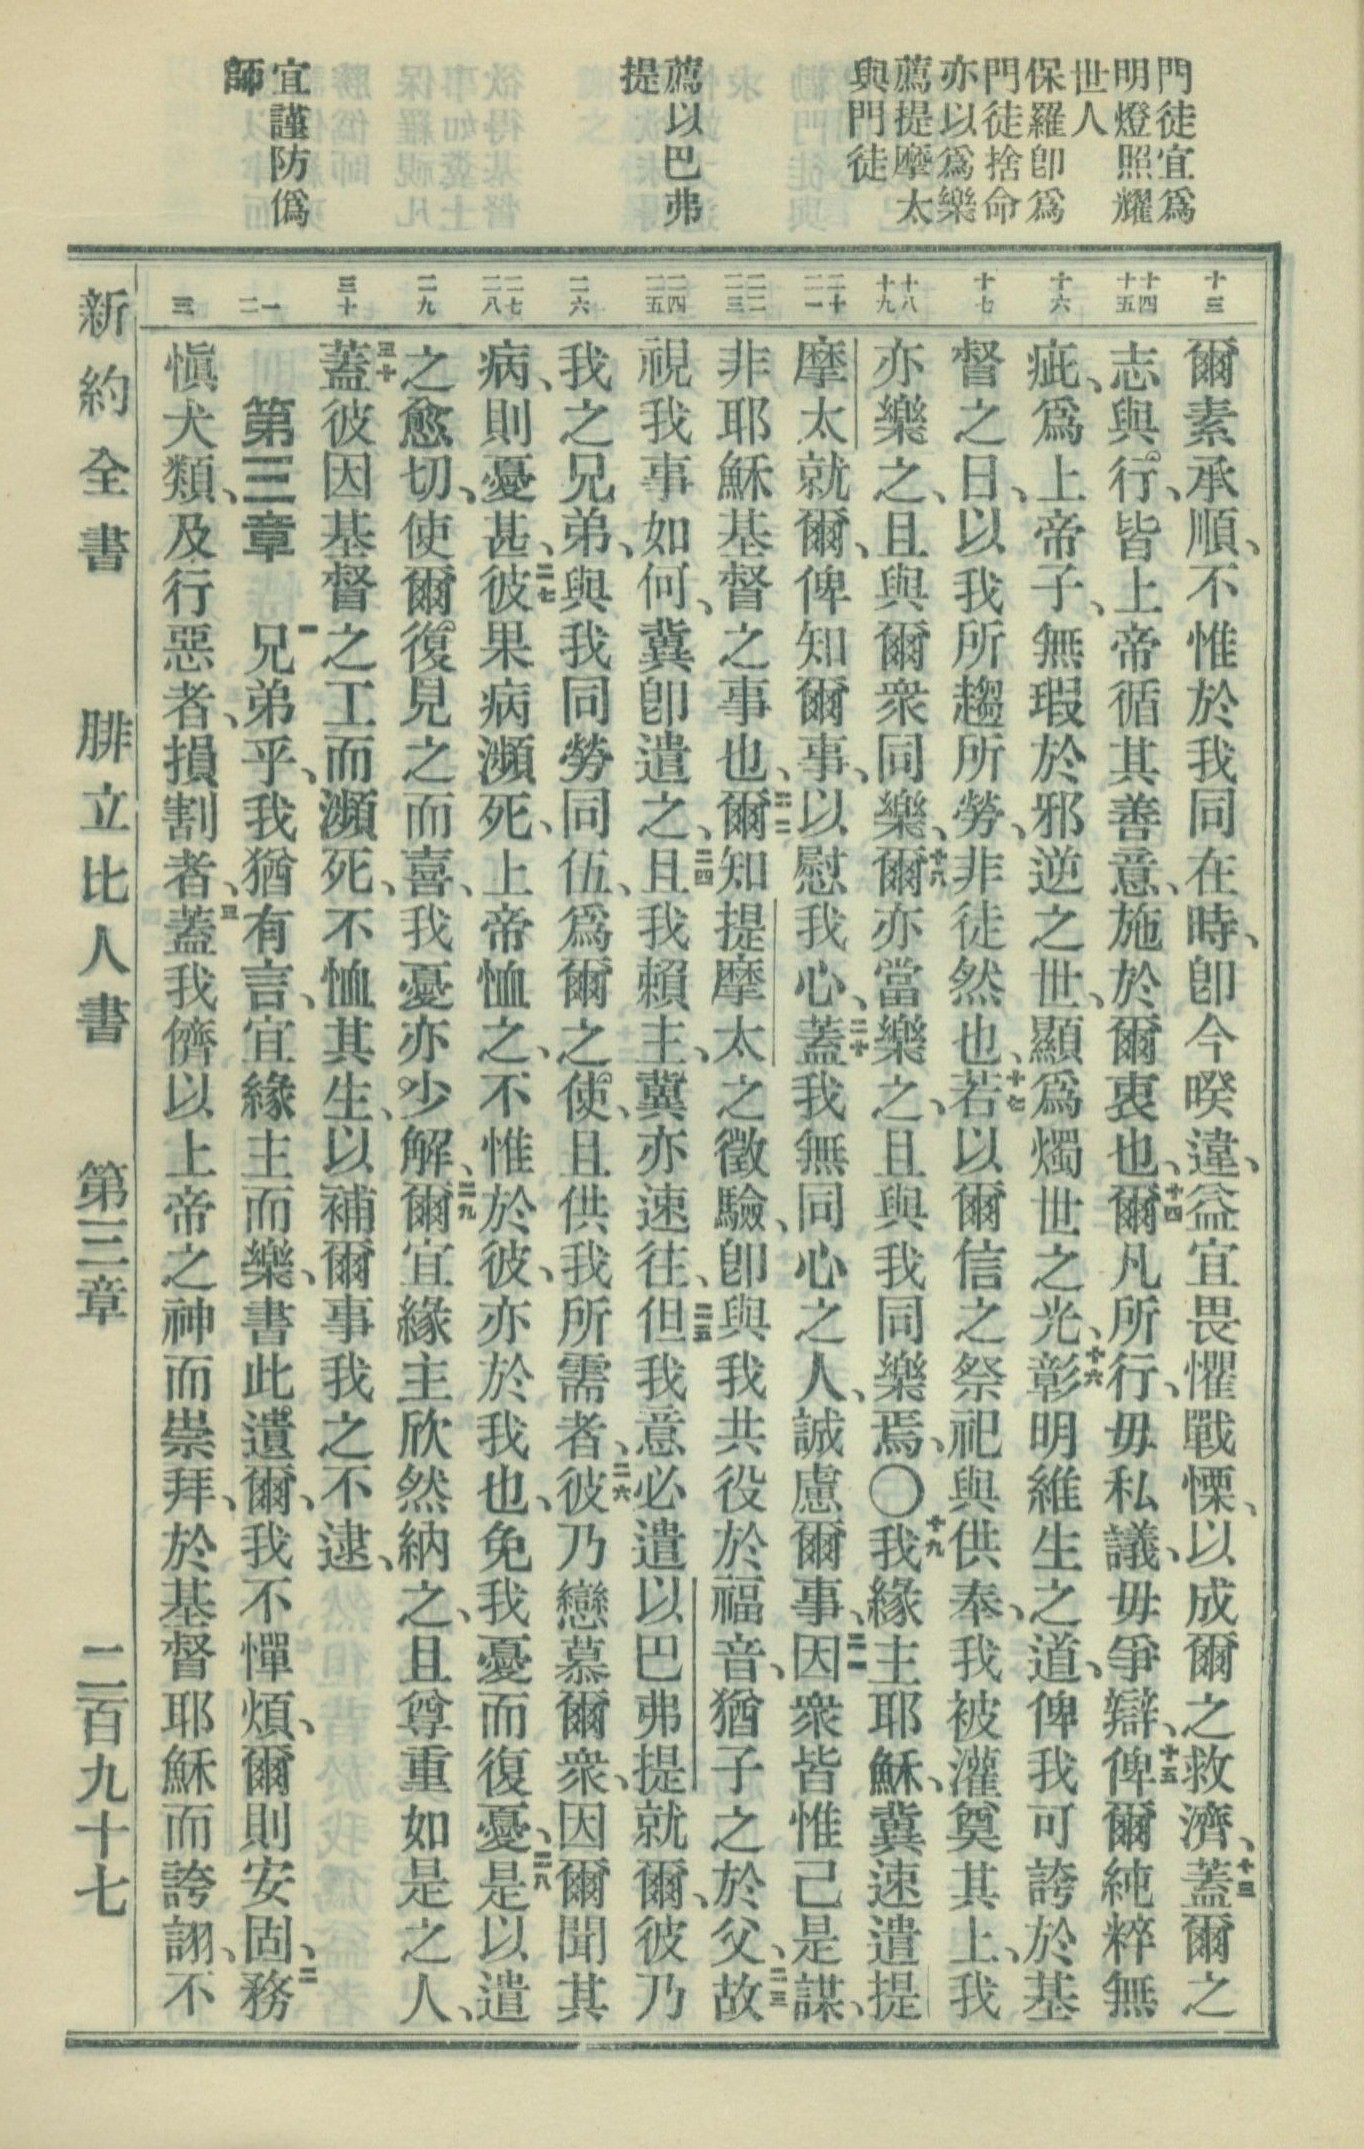 門徒宜爲
明燈照耀
世人
保羅卽爲
門徒捨命
亦以爲樂
薦提摩太
與門徒
薦以巴弗
提
宜謹防僞
師
十三
十四
十五
十六
十七
十八
十九
二十
二一
二二
二三
二四
二五
二六
二七
二八
二九
三十
一
二
三
爾素承順、不惟於我同在時、卽今暌違、益宜畏懼戰慄、以成爾之救濟、十三蓋爾之
志與行、皆上帝循其善意、施於爾衷也、十四爾凡所行、毋私議、毋爭辯、十五俾爾純粹無
疵、爲上帝子、無瑕於邪逆之世、顯爲燭世之光、十六彰明維生之道、俾我可誇於基
督之日、以我所趨所勞、非徒然也、十七若以爾信之祭祀與供奉、我被灌奠其上、我
亦樂之、且與爾衆同樂、十八爾亦當樂之、且與我同樂焉、〇十九我緣主耶穌、冀速遣提
摩太就爾、俾知爾事、以慰我心、二十蓋我無同心之人、誠慮爾事、二一因衆皆惟己是謀、
非耶穌基督之事也、二二爾知提摩太之徵驗、卽與我共役於福音、猶子之於父、二三故
視我事如何、冀卽遣之、二四且我賴主、冀亦速往、二五但我意必遣以巴弗提就爾、彼乃
我之兄弟、與我同勞同伍、爲爾之使、且供我所需者、二六彼乃戀慕爾衆、因爾聞其
病、則憂甚、二七彼果病瀕死、上帝恤之、不惟於彼、亦於我也、免我憂而復憂、二八是以遣
之愈切、使爾復見之而喜、我憂亦少解、二九爾宜緣主欣然納之、且尊重如是之人、
三十蓋彼因基督之工而瀕死、不恤其生、以補爾事我之不逮、
第三章　一兄弟乎、我猶有言、宜緣主而樂、書此遺爾、我不憚煩、爾則安固、二務
愼犬類、及行惡者、損割者、三蓋我儕以上帝之神而崇拜、於基督耶穌而誇詡、不
新約全書　腓立比人書　第三章　二百九十七